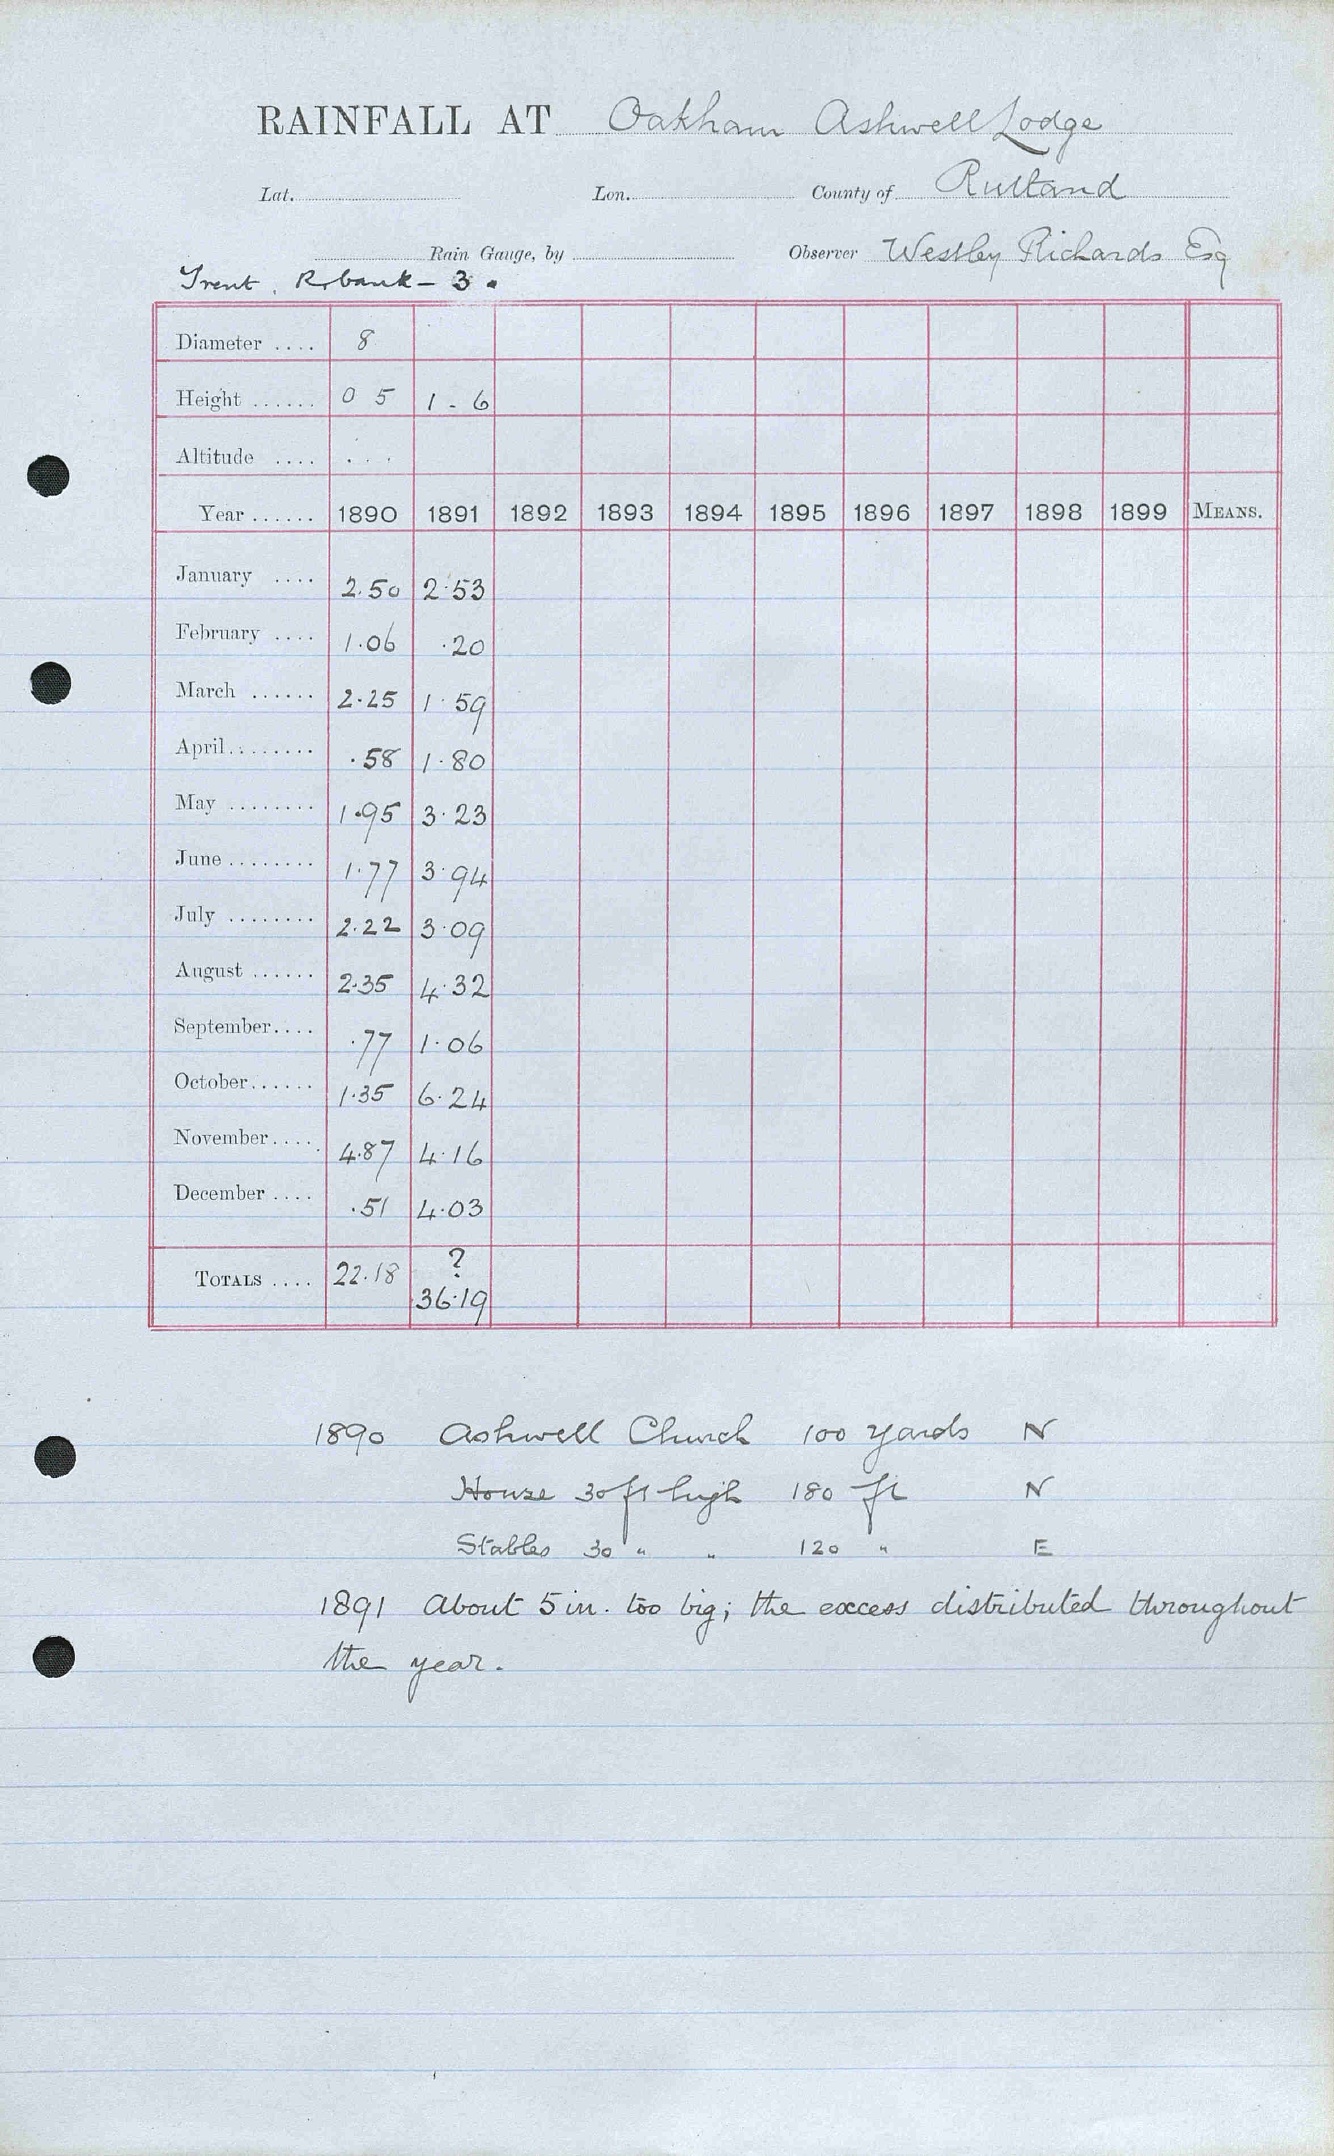 RAINFALL AT Oakham Ashwell Lodge
Lat. Lon. County of Rutland
Rain Gauge, by Observer Westley Richards Esq
Trent, R. bank - 3.
Diameter .... 8
Height ...... 0 5 1 - 6
Altitude .... . . .
Year ...... 1890 1891 1892 1893 1894 1895 1896 1897 1898 1899 MEANS.
January .... 2.50 2.53
February .... 1.06 .20
March ...... 2.25 1.59
April ........ .58 1.80
May ........ 1.95 3.23
June ........ 1.77 3.94
July ........ 2.22 3.09
August ...... 2.35 4.32
September .... .77 1.06
October ...... 1.35 6.24
November .... 4.87 4.16
December .... .51 4.03
TOTALS .... 22.18 ?
36.19
1890 Ashwell Church 100 yards N
House 30 ft high 180 ft N
Stables 30 " " 120 " E
1891 About 5 in. too big; the excess distributed throughout
the year.